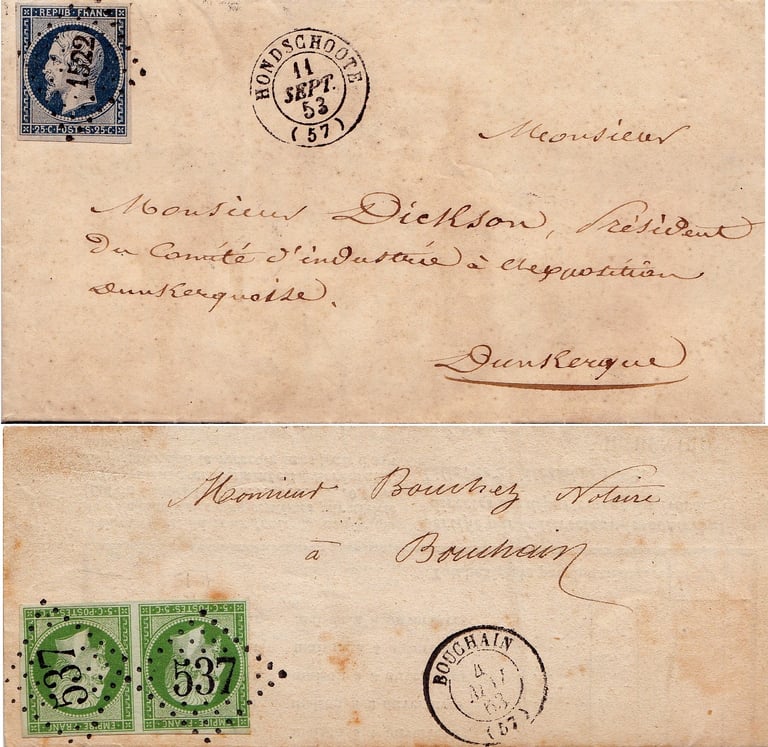 REPUB·FRANC·
1522
25·C·POSTES·25·C
HONDSCHOOTE
11
SEPT.
53
(57)
Monsieur
Monsieur Dickson, Président
du Comité d'industrie à l'exposition
Dunkerquoise.
Dunkerque
Monsieur Bouchez Notaire
à Bouchain
5·C·POSTES·5·C
537
EMPIRE·FRANC·
5·C·POSTES·5·C
537
EMPIRE·FRANC·
BOUCHAIN
4
63
(57)